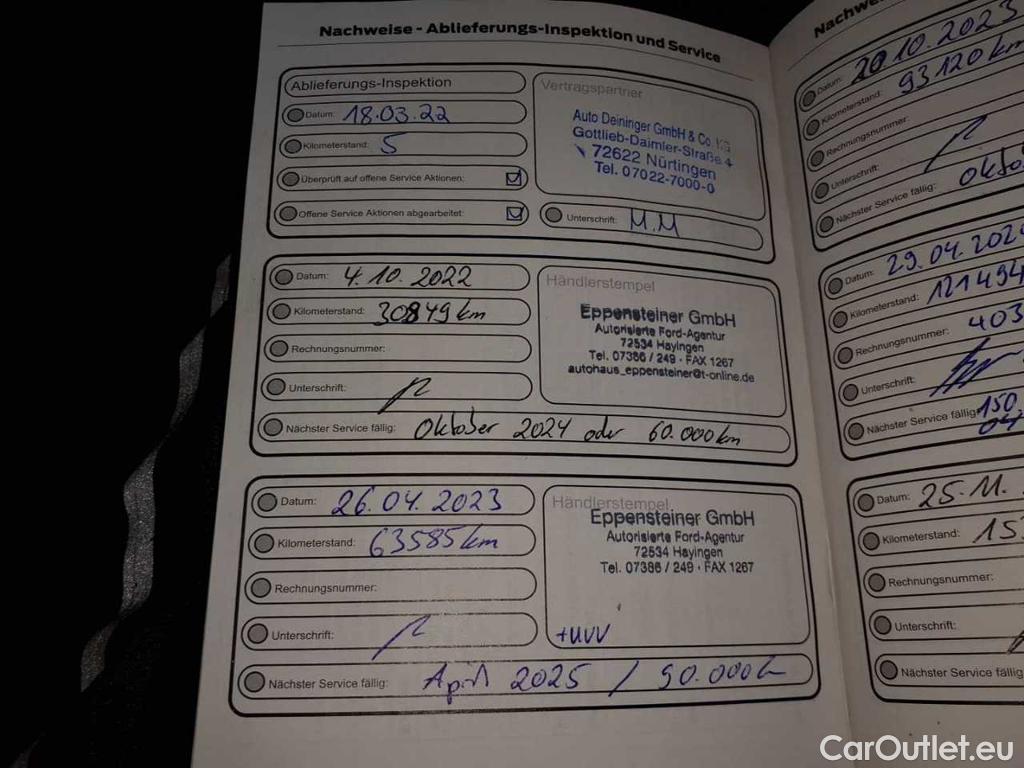 Nachweise - Ablieferungs-Inspektion und Service
Ablieferungs-Inspektion
Datum: 18.03.22
Kilometerstand: 5
Überprüft auf offene Service Aktionen:
Offene Service Aktionen abgearbeitet:
Vertragspartner
Auto Deininger GmbH & Co. KG
Gottlieb-Daimler-Straße 4
72622 Nürtingen
Tel. 07022-7000-0
Unterschrift: M.M
Datum: 4.10.2022
Kilometerstand: 30849 km
Rechnungsnummer:
Unterschrift:
Nächster Service fällig: Oktober 2024 oder 60.000km
Händlerstempel
Eppensteiner GmbH
Autorisierte Ford-Agentur
72534 Hayingen
Tel. 07386 / 249 · FAX 1267
autohaus_eppensteiner@t-online.de
Datum: 26.04.2023
Kilometerstand: 63585 km
Rechnungsnummer:
Unterschrift:
Nächster Service fällig: April 2025 / 90.000k
Händlerstempel
Eppensteiner GmbH
Autorisierte Ford-Agentur
72534 Hayingen
Tel. 07386 / 249 · FAX 1267
+UVV
Datum: 20.10.2023
Kilometerstand: 93120km
Rechnungsnummer:
Unterschrift:
Nächster Service fällig:
Datum: 29.04.202
Kilometerstand: 121494
Rechnungsnummer: 403
Unterschrift:
Nächster Service fällig: 150
Datum: 25.11.
Kilometerstand: 15
Rechnungsnummer:
Unterschrift:
Nächster Service fällig:
CarOutlet.eu